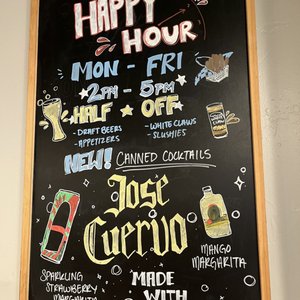 HAPPY
HOUR
MON - FRI
2PM - 5PM
HALF ★ OFF
- DRAFT BEERS
- APPETIZERS
- WHITE CLAWS
- SLUSHIES
NEW! CANNED COCKTAILS
Jose
Cuervo
MANGO
MARGARITA
SPARKLING
STRAWBERRY
MARGARITA
MADE
WITH